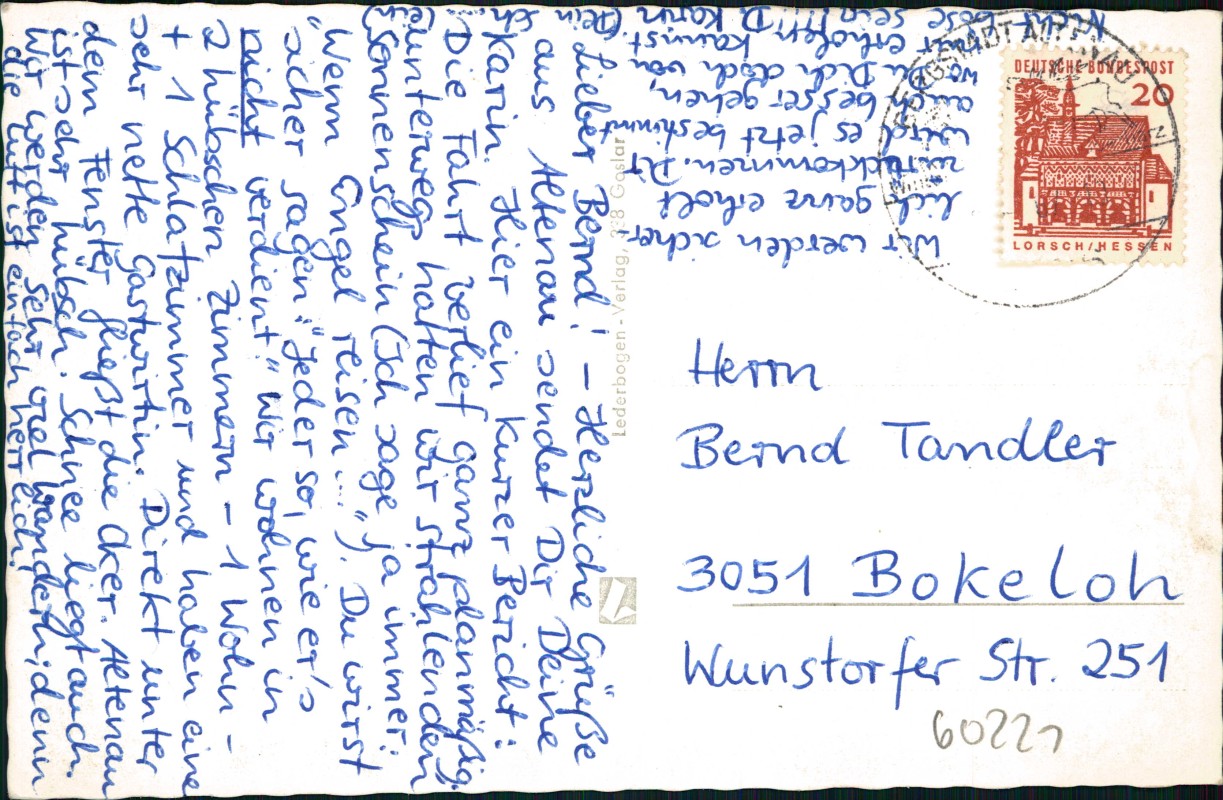 Lieber Bernd! - Herzliche Grüße
aus Altenau sendet Dir Deine
Karin. Hier ein kurzer Bericht:
Die Fahrt verlief ganz planmäßig,
unterwegs hatten wir strahlenden
Sonnenschein (Ich sage ja immer:
"Wenn Engel reisen..."). Du wirst
sicher sagen: "Jeder so, wie er's
nicht verdient." Wir wohnen in
2 hübschen Zimmern - 1 Wohn-
+ 1 Schlafzimmer und haben eine
sehr nette Gastwirtin. Direkt unter
dem Fenster fließt die Oker. Altenau
ist sehr hübsch. Schnee liegt auch.
Wir werden sehr viel wandern, denn
die Luft ist einfach herrlich!
Wir werden sicher
ganz erholt
zurückkommen. Dir
wird es jetzt bestimmt
auch besser gehen,
wo Du Dich doch von
mir erholen kannst.
Nicht böse sein!!! D. Karin
Lederbogen-Verlag, 338 Goslar
DEUTSCHE BUNDESPOST
20
LORSCH/HESSEN
BERGSTADT
Herrn
Bernd Tandler
3051 Bokeloh
Wunstorfer Str. 251
60221